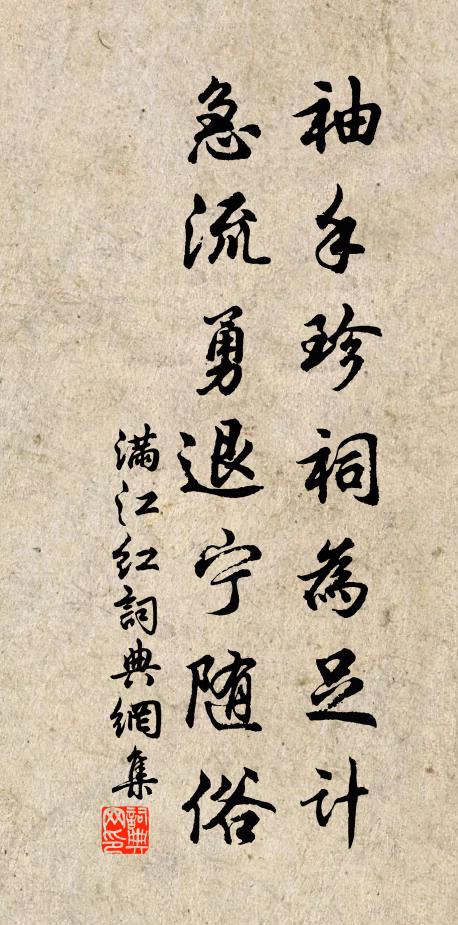 袖手珍祠為足计
急流勇退宁随俗
满江红詞典網集
詞典
网印